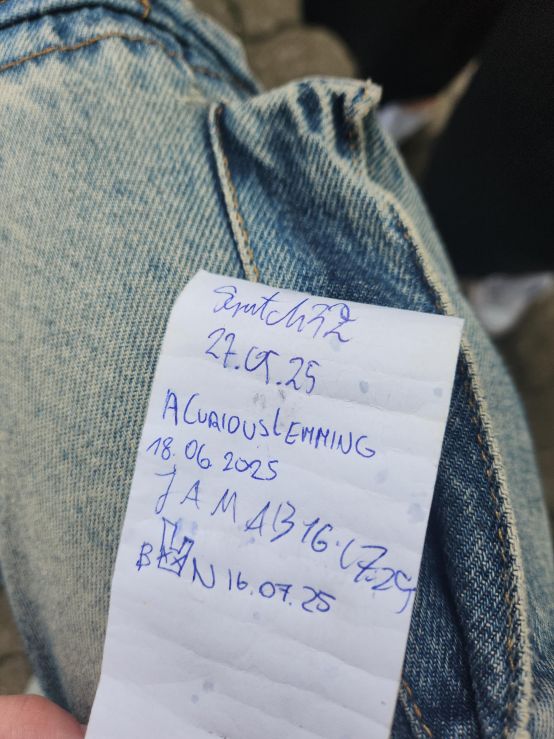 27.05.25
ACURIOUSLEMMING
18.06.2025
JAMAB 16.07.25
16.07.25